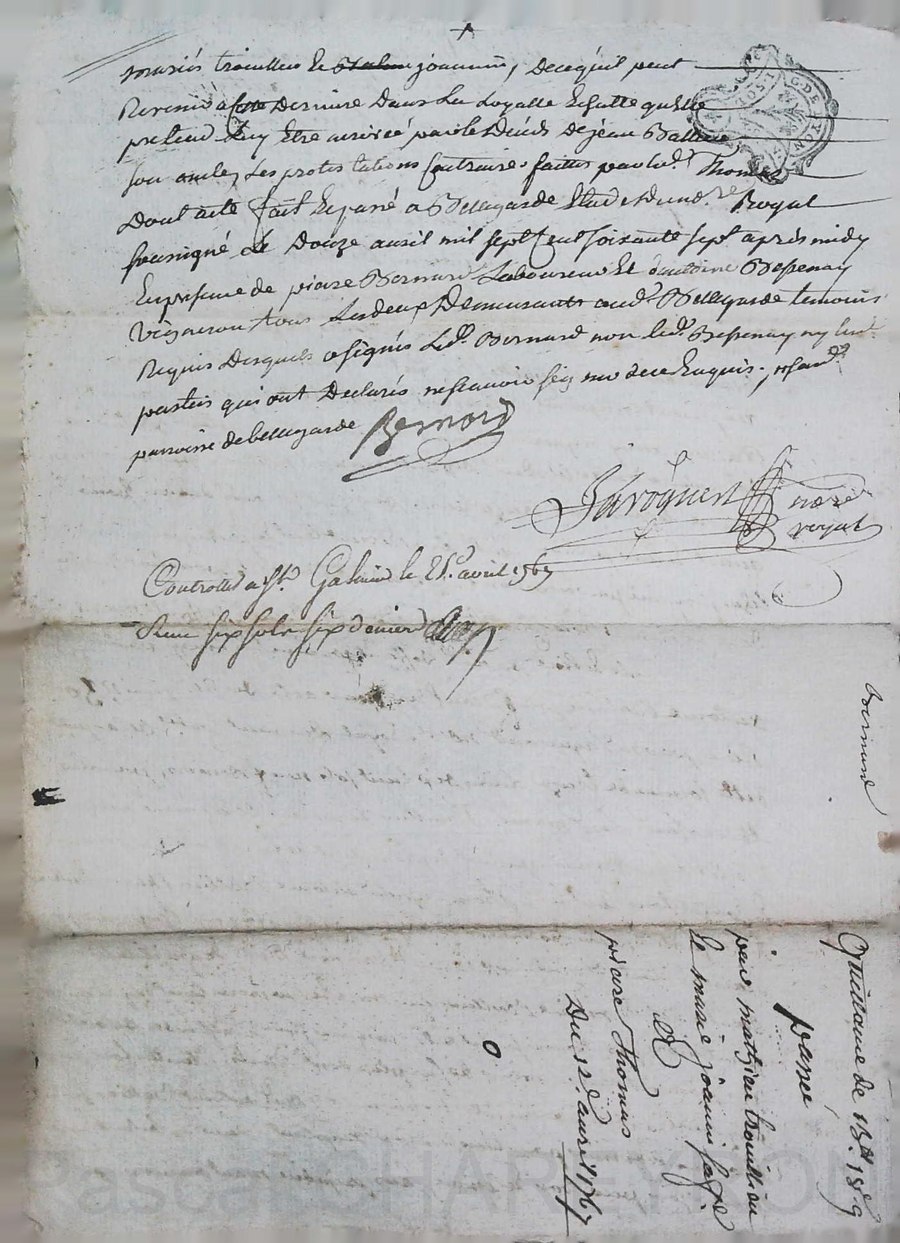 mariés trouilleu et joannin, de ce qu'il peut
Revenir a cette Derniere Dans La Loyalle Echutte qu'elle
pretend Luy Etre arrivée par le Décés de jean
son oncle, Les protestations Contraires faittes par led.t Thomas
Dont acte fait Et passé a Bellegarde Etude du nd.re Royal
soussigné Le Douze avril mil sept Cent soixante sept apres midy
En presence de piaire Bernard Laboureur Et antoine Bessenay
Vigneron tous Les deux Demeurants aud.t Bellegarde temoins
Requis Desquels a signés Led. Bernard non led. Bessenay ny les d.
parties qui ont Declarés ne scavoir signer de ce Enquis.
parroisse de bellegarde Bernard
noère
royal
Controllé a St. Galmier le 25.e avril 1767
Reçu six sols six deniers
G. DE LYON
Guillaume de 13tt 18s 9
passée
par mathieu trouillieu
Et marie joanin sa fe
A
piaire Thomas
Du 12e avril 1767
Pascal CHAREYRON